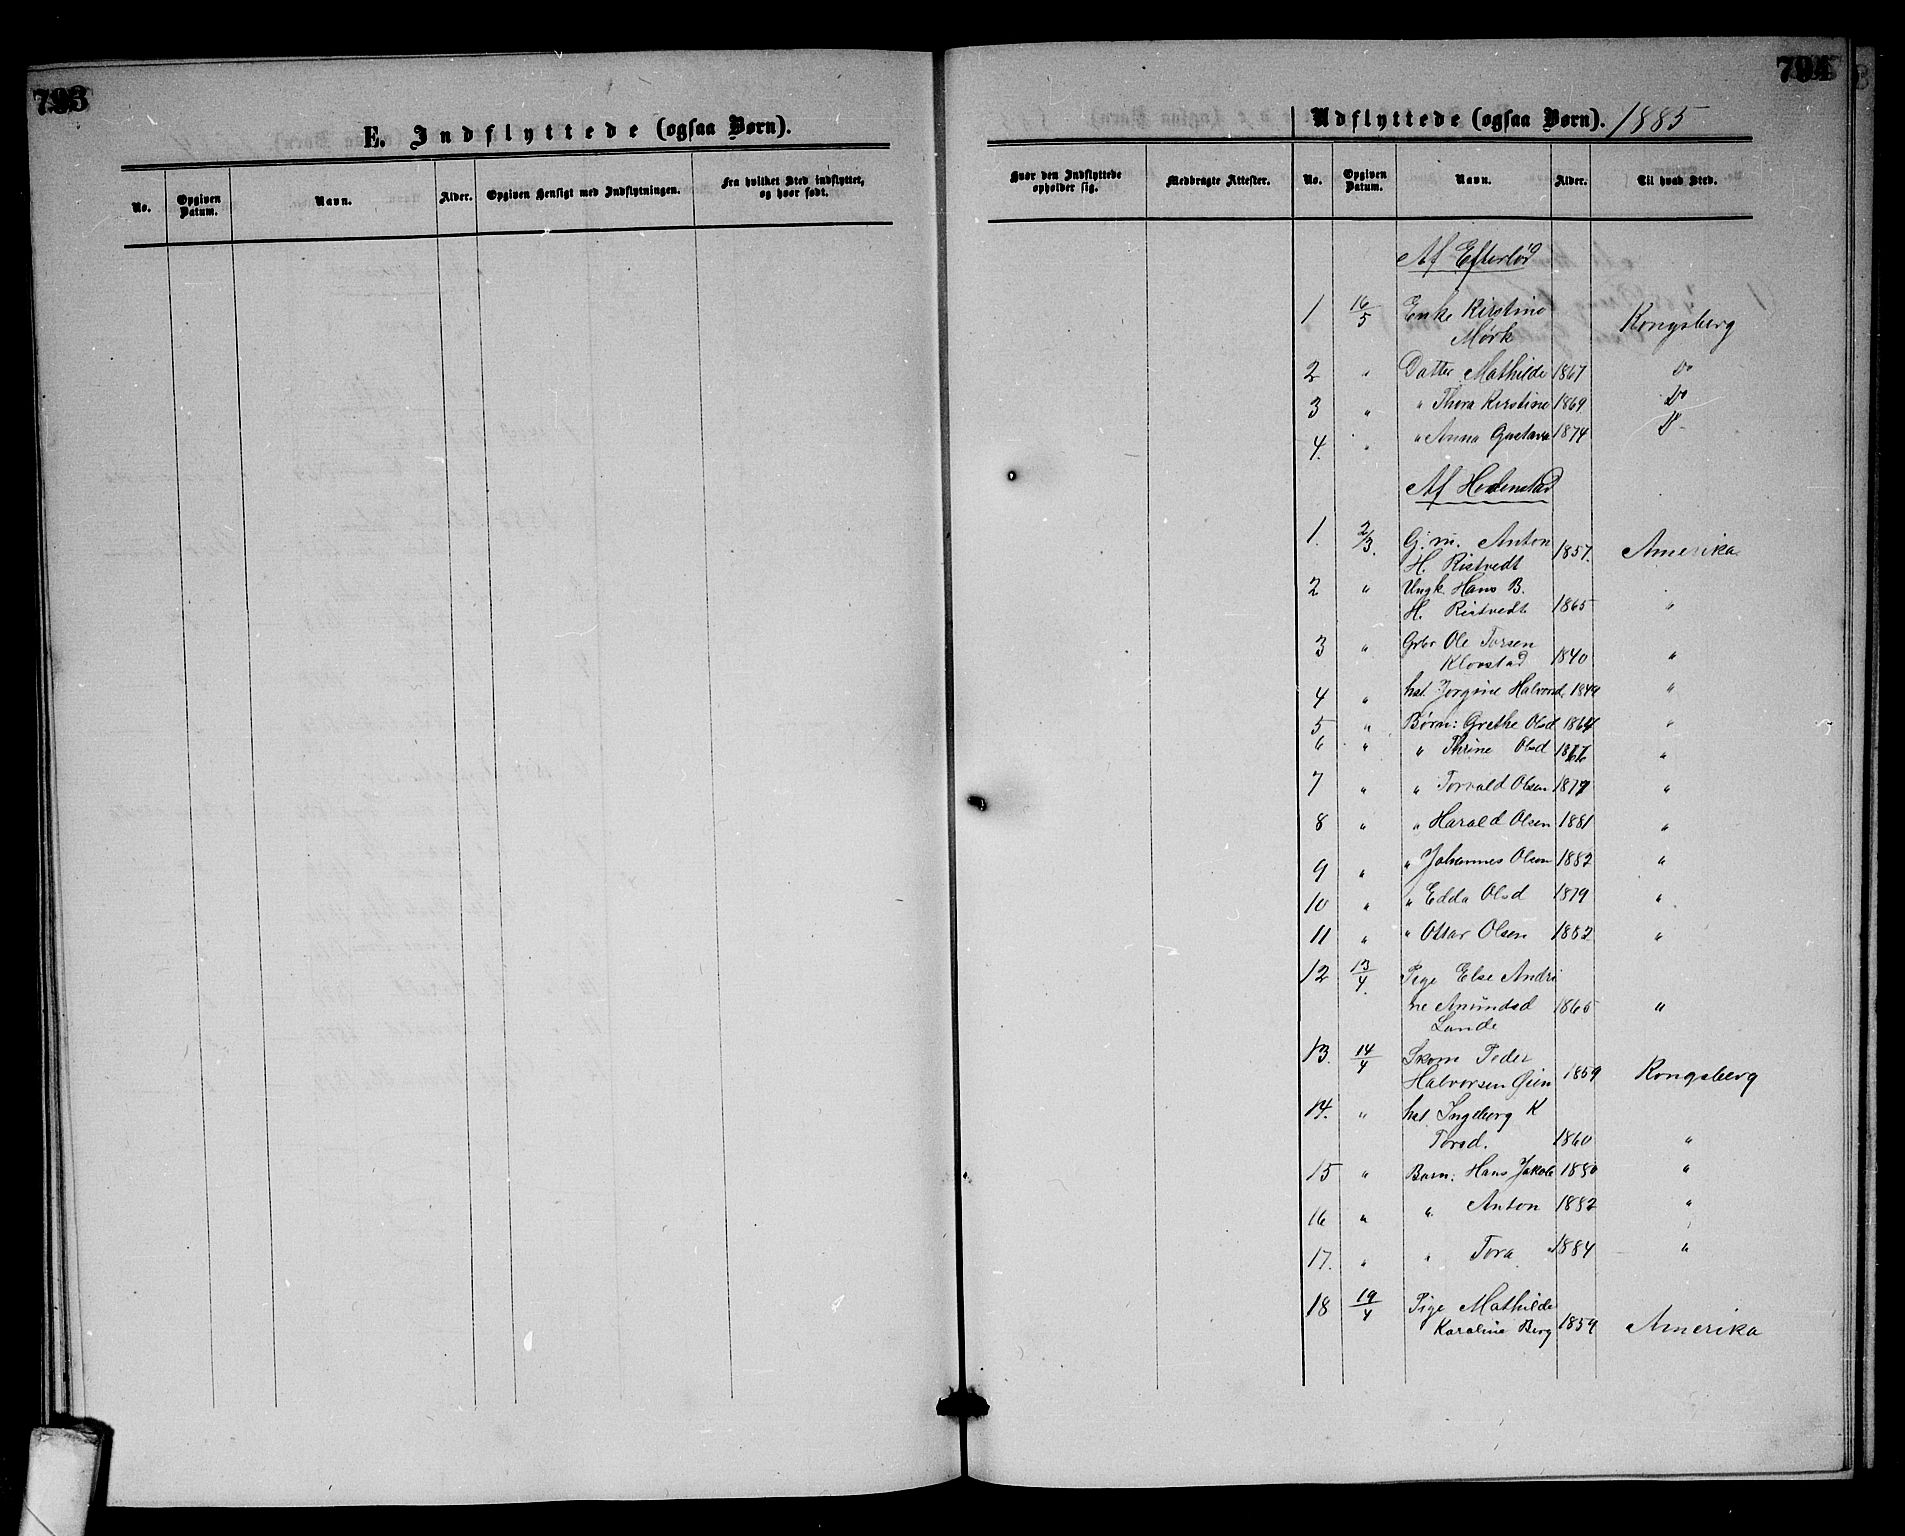 793
E. Indflyttede (ogsaa Børn).
No.
Opgiven Datum.
Navn.
Alder.
Opgiven Hensigt med Indflytningen.
Fra hvilket Sted indflyttet, og hvor født.
794
Udflyttede (ogsaa Børn). 1885
Hvor den Indflyttede opholder sig.
Medbragte Attester.
No.
Opgiven Datum.
Navn.
Alder.
Til hvad Sted.
Af Efterlød
1 16/5 Enke Kirstine
Mørk Kongsberg
2 " Datter Mathilde 1867 Do
3 " " Thora Kirstine 1869 Do
4. " " Anna Gustava 1874 D-
Af Hedenstad
1. 2/3. Gj. m. Anton
H. Ristvedt 1857. Amerika
2 " Ungk. Hans B.
H. Ristvedt 1865 "
3 " Grbr Ole Torsen
Klovstad 1840 "
4 " hst. Jorgine Halvorsd. 1849 "
5 " Børn: Grethe Olsd 1864 "
6 " " Thrine Olsd "
7 " " Torvald Olsen 1877 "
8 " " Harald Olsen 1881 "
9 " " Johannes Olsen 1882 "
10 " " Edda Olsd 1879 "
11 " " Ottar Olsen 1882 "
12 13/4. Pige Else Andri
ne Amundsd 1865 "
Lande
13. 14/4 Skom Peder
Halvorsen Øien 1859 Kongsberg
14. " hst. Ingeborg K
Torsd. 1860 "
15 " Barn: Hans Jakob 1880 "
16 " " Anton 1882 "
17. " " Tora 1884 "
18 19/4 Pige Mathilde
Karoline Berg 1859 Amerika